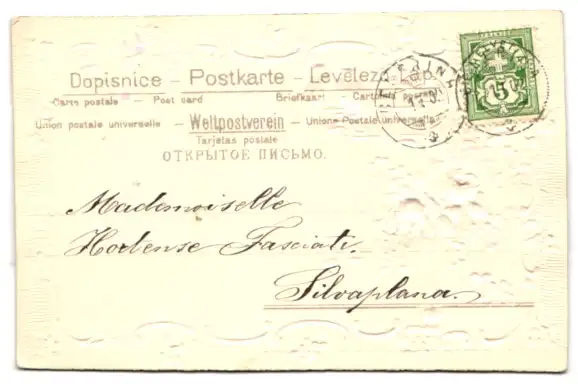 Dopisnice – Postkarte – Levelező-Lap
Carte postale Post card Briefkaart – Cartolina postale
Union postale universelle – Weltpostverein – Union Postale universelle
Tarjetas postale
ОТКРЫТОЕ ПИСЬМО.
5
Mademoiselle
Hortense Fasciati.
Silvaplana.